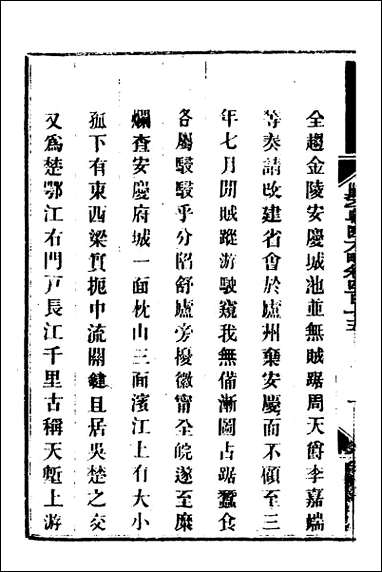 全趨金陵安慶城池並無賊踞周天爵李嘉端
等奏請改建省會於廬州棄安慶而不顧至三
年七月閒賊蹤游駛窺我無備漸圖占踞蠶食
各屬駸駸乎分陷舒廬旁擾徽甯全皖遂至糜
爛查安慶府城一面枕山三面濱江上有大小
孤下有東西梁實扼中流關鍵且居吳楚之交
又爲楚鄂江右門戸長江千里古稱天塹上游